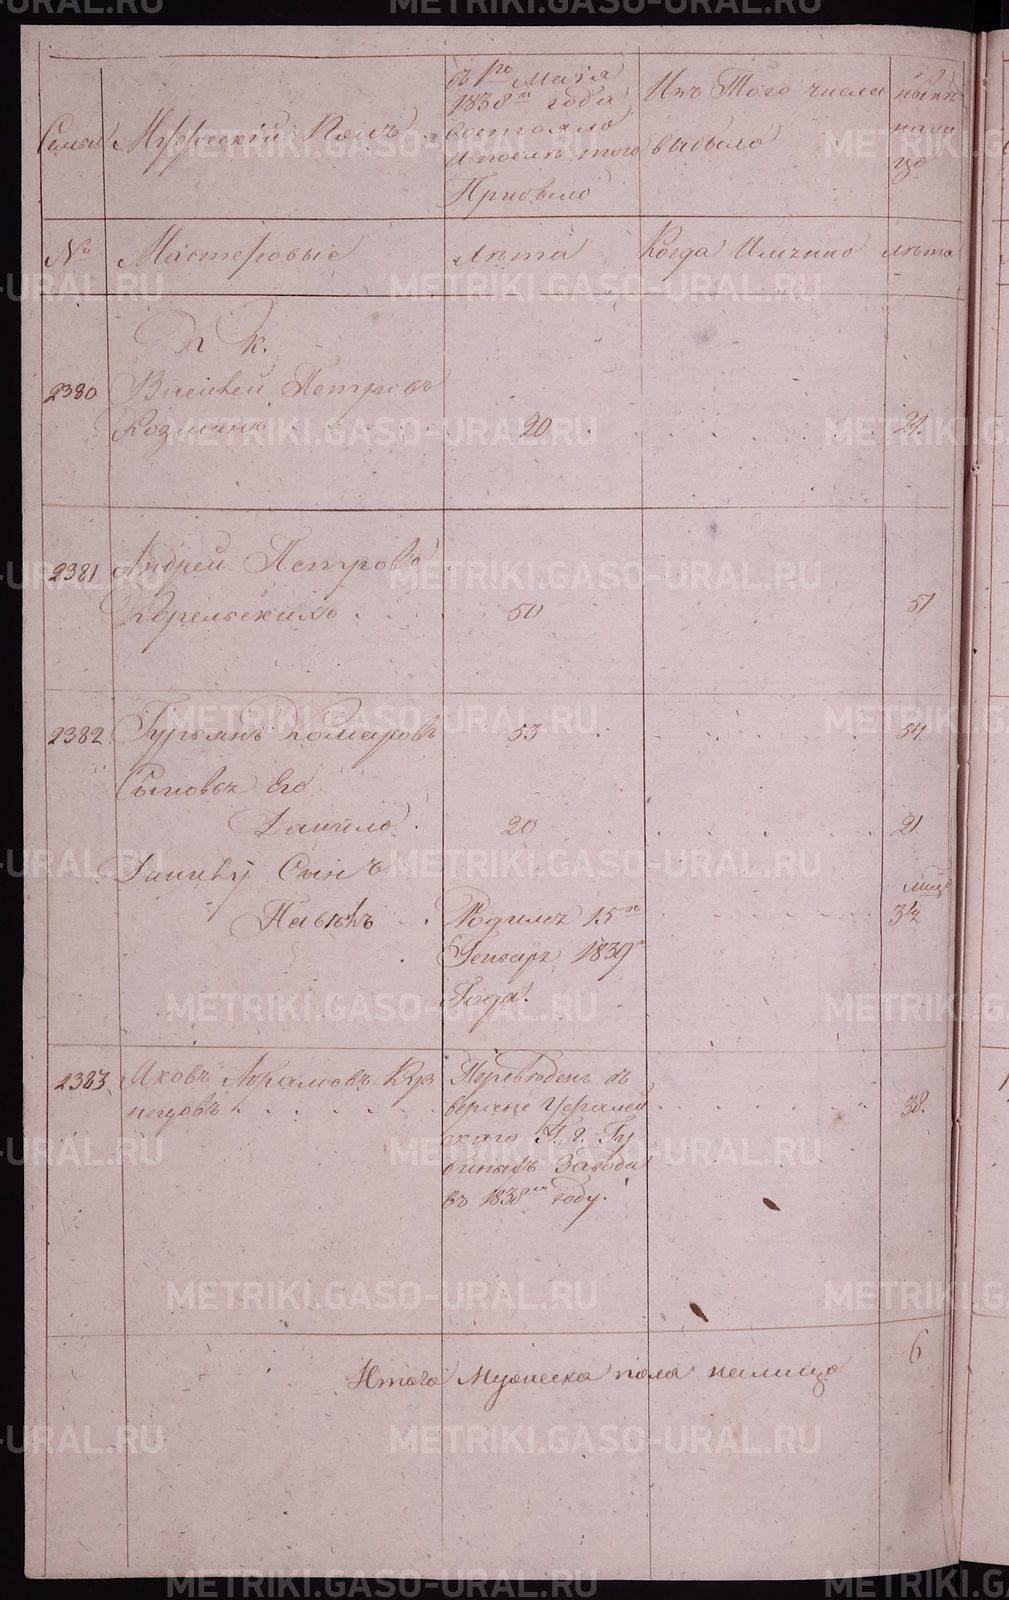 Семьи
Мужескій Полъ
съ 1го Маія
1838го года
состояло
и послѣ того
Прибыло
Изъ Того числа
выбыло
нынѣ
на ли
цо
№
Мастеровые
лѣта
Когда Имянно
лѣта
2380
Василей Петровъ
Козминъ
20
21
2381
Андрей Петровъ
Корельскихъ
50
51
2382
Гурьянъ Комаровъ
53
54
Сыновья Его
Данило
20
21
Данилы Сынъ
Павелъ
Родился 15го
Генваря 1839го
Года
3½
2383
Яковъ Абрамовъ Куз
нецовъ
Переведенъ съ
Уфалей
скаго Гу
биныхъ Завода
въ 1838м году.
38
Итого Мужеска пола налицо
6
METRIKI.GASO-URAL.RU